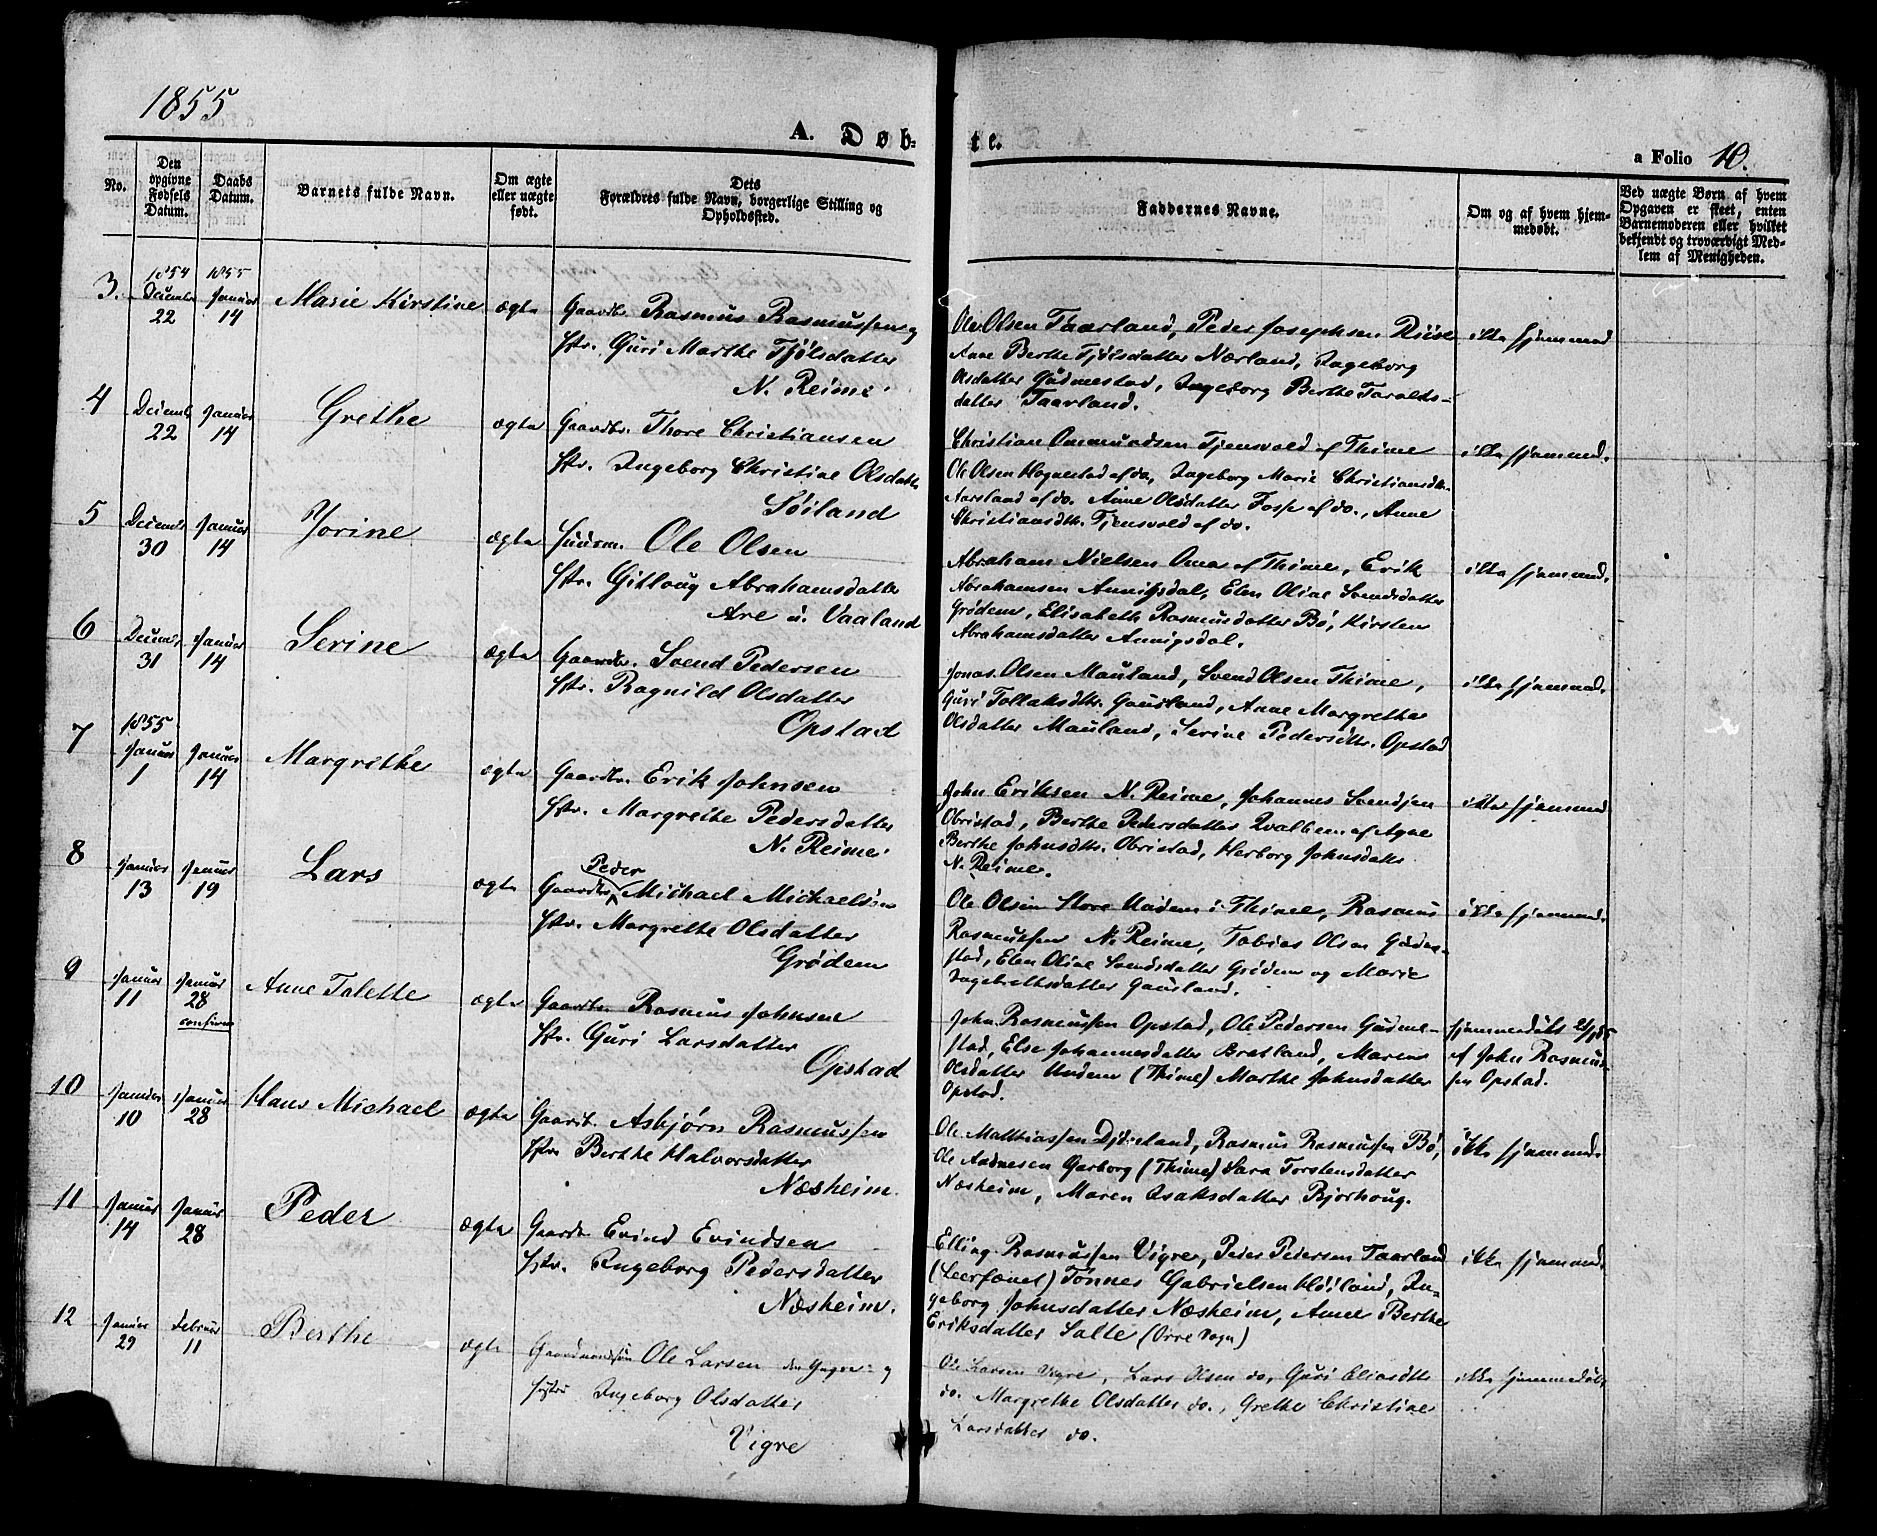 1855
A. Døb-
te.
a Folio 10.
No.
Den opgivne Fødsels Datum.
Daabs Datum.
Barnets fulde Navn.
Om ægte eller uægte født.
Dets Forældres fulde Navn, borgerlige Stilling og Opholdssted.
Faddernes Navne.
Om og af hvem hjemmedøbt.
Ved uægte Børn af hvem Opgaven er skeet, enten Barnemoderen eller hvilket bekjendt og troværdigt Medlem af Menigheden.
3.
1854 December 22
1855 Januar 14
Marie Kirstine
ægte
Gaardbr. Rasmus Rasmussen og
Hstr. Guri Marthe Tjølsdatter
N. Reime
Ole Olsen Taarland, Peder Josephsen
Anne Berthe Tjølsdatter Nærland, Ingeborg
Olsdatter Gudmestad, Ingeborg Berthe Taralds-
datter Taarland.
ikke hjemmed
4
Decemb 22
Januar 14
Grethe
ægte
Gaardbr. Thore Christiansen
Hstr. Ingeborg Christine Olsdatter
Søiland
Christian Ommundsen Tjensvold af Thime
Ole Olsen Hognestad af do, Ingeborg Marie Christiansdtr.
Aarsland af do. Anne Olsdatter Foss af do., Anne
Christiansdtr. Tjensvold af do.
ikke hjemmed.
5
Decemb 30
Januar 14
Jorine
ægte
Huusm. Ole Olsen
Hstr. Gitloug Abrahamsdatter
Are u. Vaaland
Abraham Nielsen Oma af Thime, Erik
Abrahamsen Aunigsdal, Elen Oline Svendsdatter
Grødem, Elisabeth Rasmusdatter Bø, Kirsten
Abrahamsdatter Aunigsdal.
ikke hjemmed.
6
Decemb 31
Januar 14
Serine
ægte
Gaardbr. Svend Pedersen
Hstr. Ragnild Olsdatter
Opstad
Jonas Olsen Mauland, Svend Olsen Thime,
Guri Tollaksdtr. Gausland, Anne Margrethe
Olsdatter Mauland, Serine Pedersdtr. Opstad
ikke hjemmed.
7
1855 Januar 1
Januar 14
Margrethe
ægte
Gaardbr. Erik Johnsen
Hstr. Margrethe Pedersdatter
N. Reime
John Eriksen N. Reime, Johannes Svendsen
Obrestad, Berthe Pedersdatter Qvalbein af Ogne
Berthe Johnsdtr. Obrestad, Herborg Johnsdatter
N. Reime.
ikke hjemmed
8
Januar 13
Januar 19
Lars
ægte
Peder
Gaardbr. Michael Michaelsen
Hstr. Margrethe Olsdatter
Grødem
Ole Olsen Store Undem i Thime, Rasmus
Rasmussen N. Reime, Tobias Olsen Gudme-
stad, Elen Oline Svendsdatter Grødem og Marie
Ingebretsdatter Gausland.
ikke hjemmed.
9
Januar 11
Januar 28
confirm
Anne Talette
ægte
Gaardbr. Rasmus Johnsen
Hstr. Guri Larsdatter
Opstad
John Rasmussen Opstad, Ole Pedersen Gudme-
stad, Else Johannesdatter Bratland, Maren
Olsdatter Undem (Thime) Marthe Johnsdatter
Opstad.
hjemmedøbt
af John Rasmus-
sen Opstad.
10
Januar 10
Januar 28
Hans Michael
ægte
Gaardb. Asbjørn Rasmussen
Hstr. Berthe Halvorsdatter
Næsheim.
Ole Matthiassen Djøseland, Rasmus Rasmussen Bø,
Ole Aadnesen Garborg (Thime) Sara Torstensdatter
Næsheim, Maren Isaksdatter Bjorhoug.
ikke hjemmed.
11
Januar 14
Januar 28
Peder
ægte
Gaardb. Evind Evindsen
Hstr. Ingeborg Pedersdatter
Næsheim.
Elling Rasmussen Vigre, Peder Pedersen Taarland
Tønnes Gabrielsen Høiland, In-
geborg Johnsdatter Næsheim, Anne Berthe
Eriksdatter Salte (Orre Sogn)
ikke hjemmed.
12
Januar 29
Februar 11
Berthe
ægte
Gaardmandssøn Ole Larsen den Yngre og
Hustru Ingeborg Olsdatter
Vigre
Ole Larsen Vigre, Lars Olsen do, Guri Eliasdtr
do. Margrethe Olsdatter do., Grethe Christine
Larsdatter do.
ikke hjemmedøbt